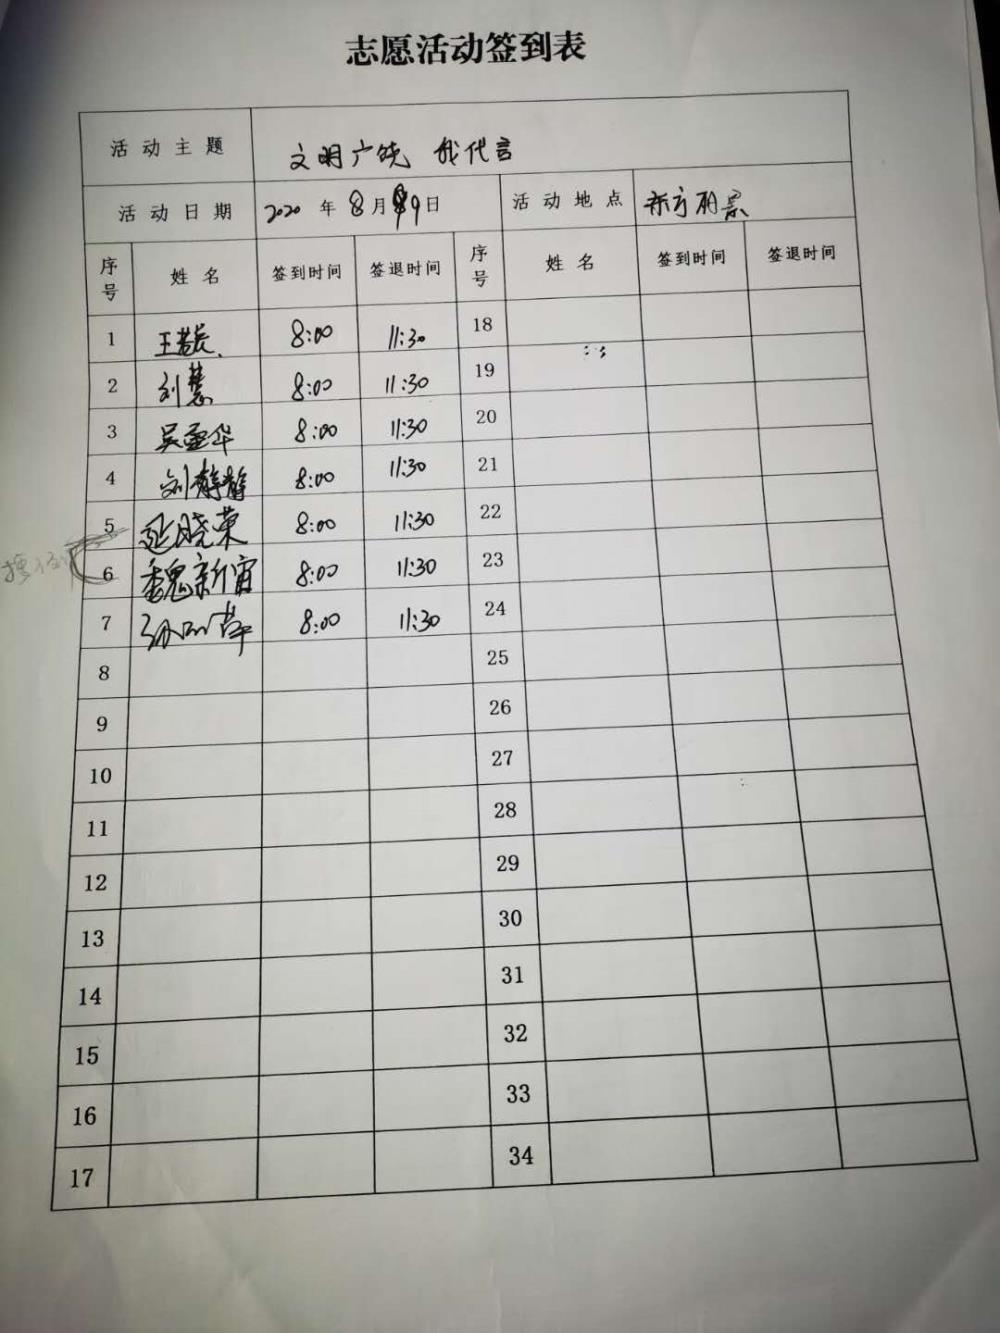 志愿活动签到表
活动主题 文明广饶 我代言
活动日期 2020年8月9日 活动地点 东方丽景
序号 姓名 签到时间 签退时间 序号 姓名 签到时间 签退时间
1 8:00 11:30 18
2 刘慧 8:00 11:30 19
3 吴亚华 8:00 11:30 20
4 刘静静 8:00 11:30 21
5 延晓荣 8:00 11:30 22
6 魏新宙 8:00 11:30 23
7 8:00 11:30 24
8 25
9 26
10 27
11 28
12 29
13 30
14 31
15 32
16 33
17 34